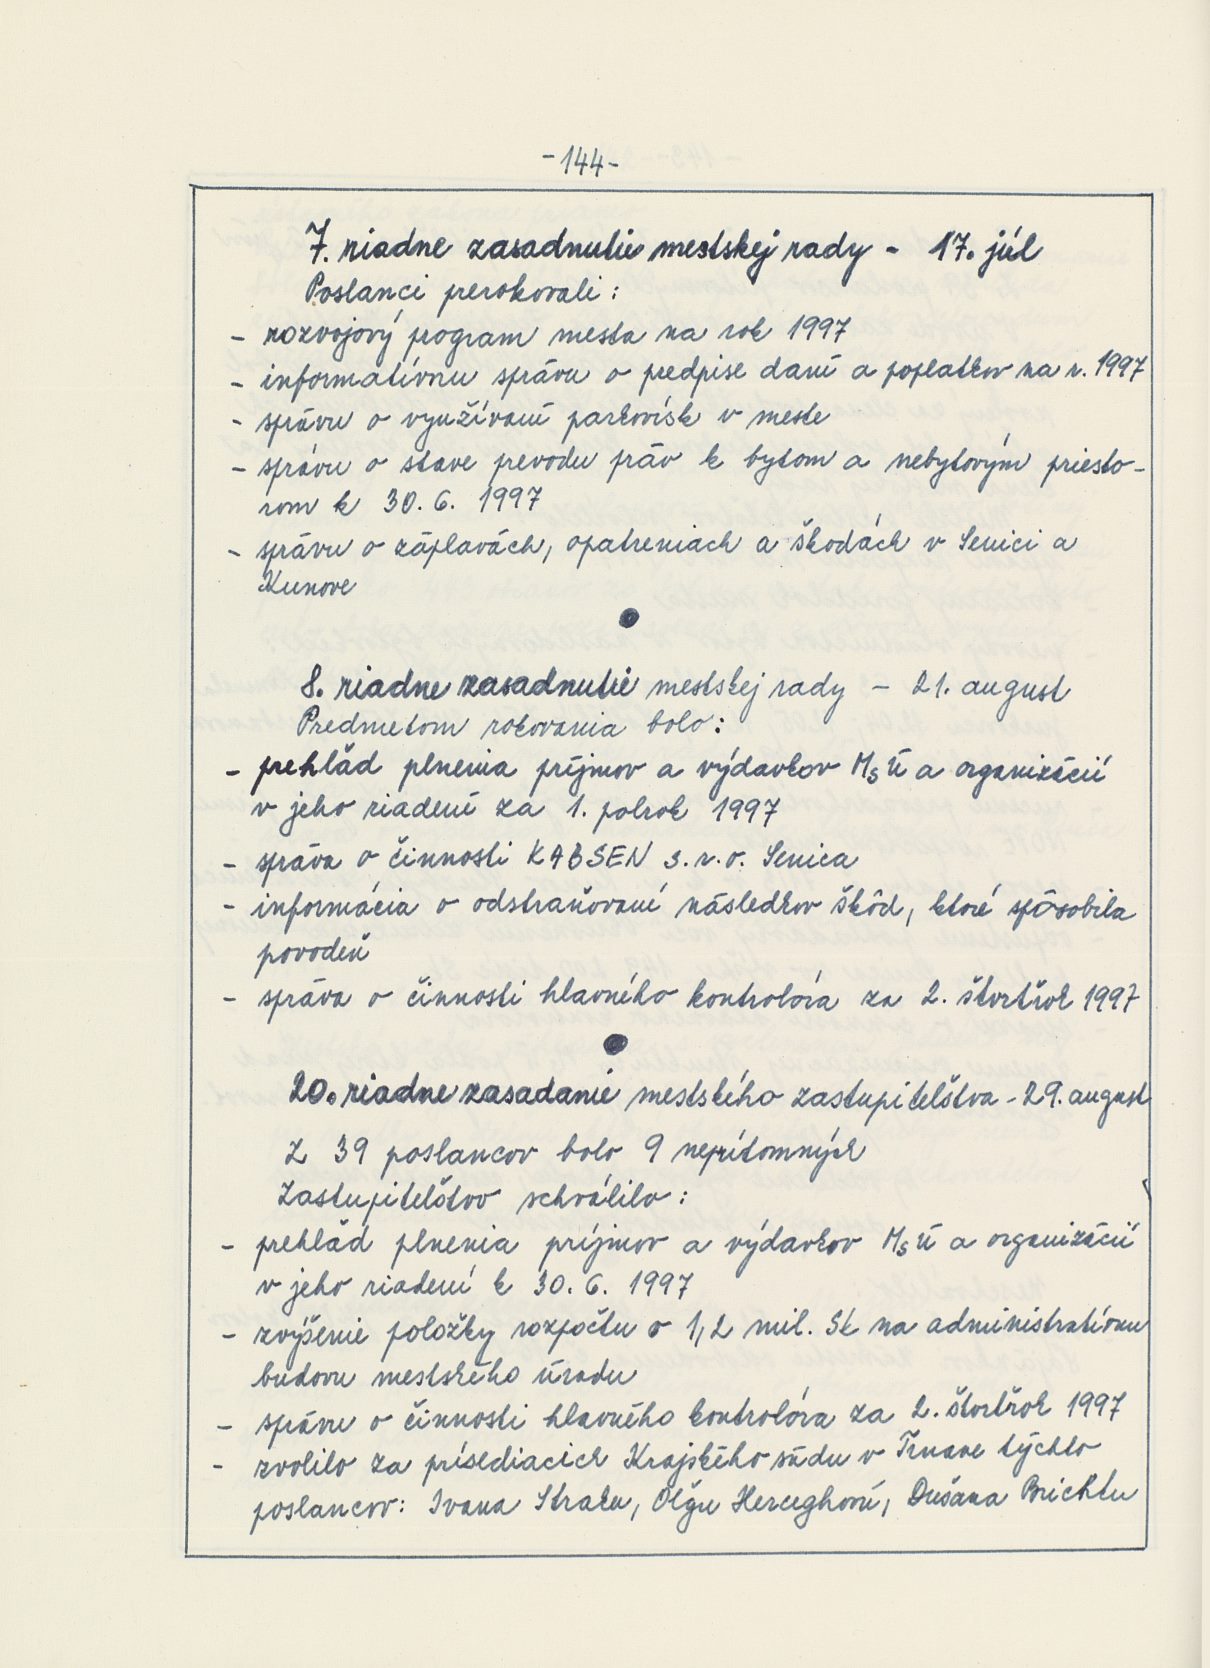 -144-
7. riadne zasadnutie mestskej rady - 17. júl
Poslanci prerokovali:
- rozvojový program mesta na rok 1997
- informatívnu správu o predpise daní a poplatkov na r. 1997
- správu o využívaní parkovísk v meste
- správu o stave prevodu práv k bytom a nebytovým priesto-
rom k 30. 6. 1997
- správu o záplavách, opatreniach a škodách v Senici a
Kunove
8. riadne zasadnutie mestskej rady - 21. august
Predmetom rokovania bolo:
- prehľad plnenia príjmov a výdavkov MsÚ a organizácií
v jeho riadení za 1. polrok 1997
- správa o činnosti KABSEN s.r.o. Senica
- informácia o odstraňovaní následkov škôd, ktoré spôsobila
povodeň
- správa o činnosti hlavného kontrolóra za 2. štvrťrok 1997
20. riadne zasadanie mestského zastupiteľstva - 29. august
Z 39 poslancov bolo 9 neprítomných
Zastupiteľstvo schválilo:
- prehľad plnenia príjmov a výdavkov MsÚ a organizácií
v jeho riadení k 30. 6. 1997
- zvýšenie položky rozpočtu o 1,2 mil. Sk na administratívnu
budovu mestského úradu
- správu o činnosti hlavného kontrolóra za 2. štvrťrok 1997
- zvolilo za prísediacich Krajského súdu v Trnave týchto
poslancov: Ivana Straku, Oľgu Herceghovú, Dušana Brichtu